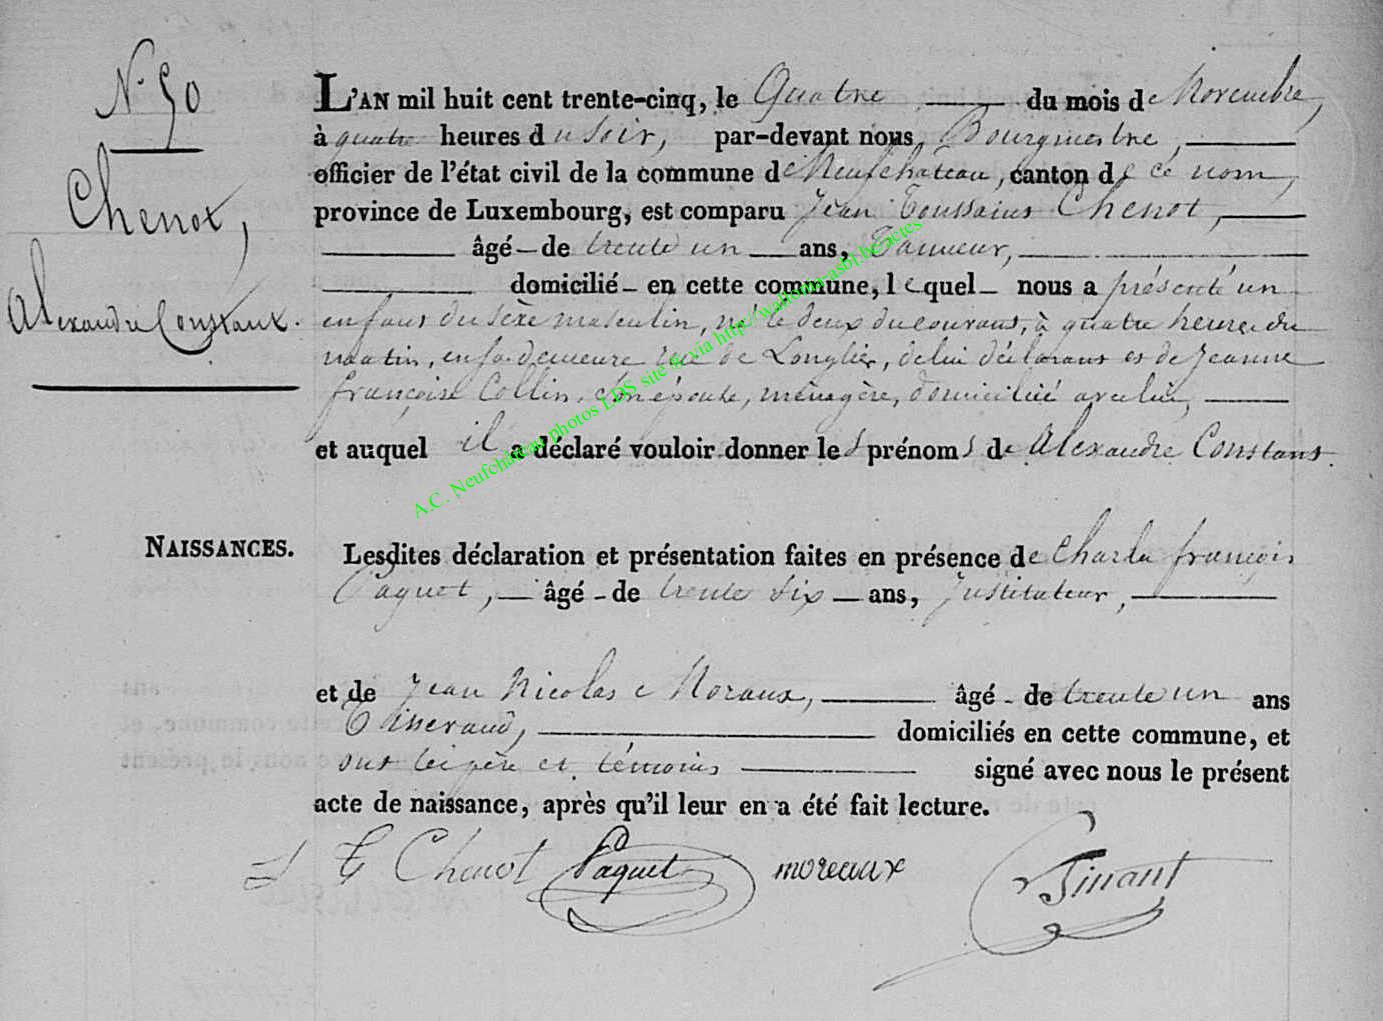 N° 50
Chenot,
Alexandre Constant.
L'AN mil huit cent trente-cinq, le Quatre du mois de Novembre,
à quatre heures du soir, par-devant nous Bourgmestre,
officier de l'état civil de la commune de Neufchâteau, canton de ce nom,
province de Luxembourg, est comparu Jean Toussaint Chenot,
âgé de trente un ans, Tanneur,
domicilié en cette commune, lequel nous a présenté un
enfant du sèxe masculin, né le deux du courant, à quatre heures du
matin, en sa demeure rue de Longlier, de lui déclarant et de Jeanne
françoise Collin, son épouse, ménagère, domiciliée avec lui,
et auquel il a déclaré vouloir donner les prénoms de Alexandre Constant.
NAISSANCES.
Lesdites déclaration et présentation faites en présence de Charles françois
Paquet, âgé de trente six ans, Instituteur,
et de Jean Nicolas Moraux, âgé de trente un ans
Tisserand, domiciliés en cette commune, et
ont les père et témoins signé avec nous le présent
acte de naissance, après qu'il leur en a été fait lecture.
J T Chenot Paquet moreaux Tinant
A.C. Neufchâteau photos LDS site & via http://wallonia-asbl.be/actes